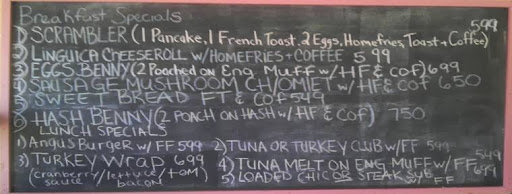 Breakfast Specials
1) SCRAMBLER (1 Pancake, 1 French Toast, 2 Eggs, Homefries, Toast + Coffee) 5.99
2) LINGUICA CHEESEROLL W/HOMEFRIES + COFFEE 5 99
3) EGGS BENNY (2 Poached on Eng Muff w/HF & Cof) 699
4) SAUSAGE MUSHROOM CH/OMLET w/ HF & COF 6 50
5) SWEET BREAD FT & COF 549
6) HASH BENNY (2 POACH ON HASH w/ HF & COF) 750
LUNCH SPECIALS
1) Angus BurgeR W/ FF 599 2) TUNA OR TURKEY CLUB W/FF 599
3) TURKEY Wrap 699 4) TUNA MELT ON ENG MUFF W/FF 549
(cranberry/lettuce/tom) 5) LOADED CHIC OR STEAK SUB 699
sauce bacon W/ FF